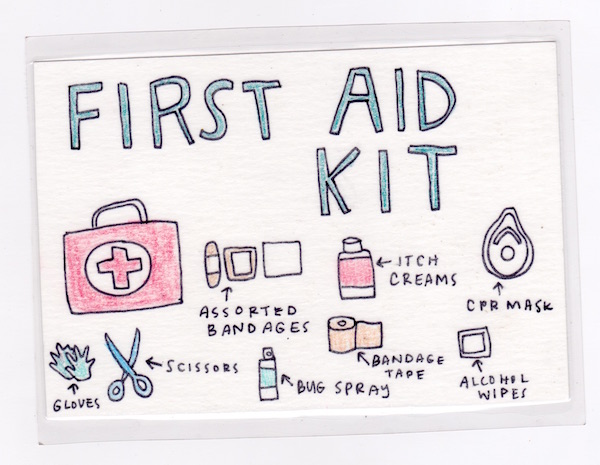 FIRST AID
KIT
ASSORTED
BANDAGES
ITCH
CREAMS
CPR MASK
GLOVES
SCISSORS
BUG SPRAY
BANDAGE
TAPE
ALCOHOL
WIPES